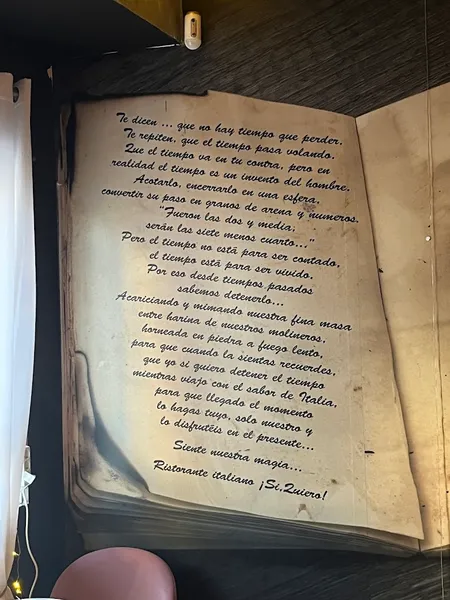 Te dicen ... que no hay tiempo que perder.
Te repiten, que el tiempo pasa volando.
Que el tiempo va en tu contra, pero en
realidad el tiempo es un invento del hombre.
Acotarlo, encerrarlo en una esfera,
convertir su paso en granos de arena y números.
"Fueron las dos y media,
serán las siete menos cuarto..."
Pero el tiempo no está para ser contado,
el tiempo está para ser vivido.
Por eso desde tiempos pasados
sabemos detenerlo...
Acariciando y mimando nuestra fina masa
entre harina de nuestros molineros,
horneada en piedra a fuego lento,
para que cuando la sientas recuerdes,
que yo si quiero detener el tiempo
mientras viajo con el sabor de Italia,
para que llegado el momento
lo hagas tuyo, solo nuestro y
lo disfrutéis en el presente...
Siente nuestra magia...
Ristorante italiano ¡Si,Quiero!